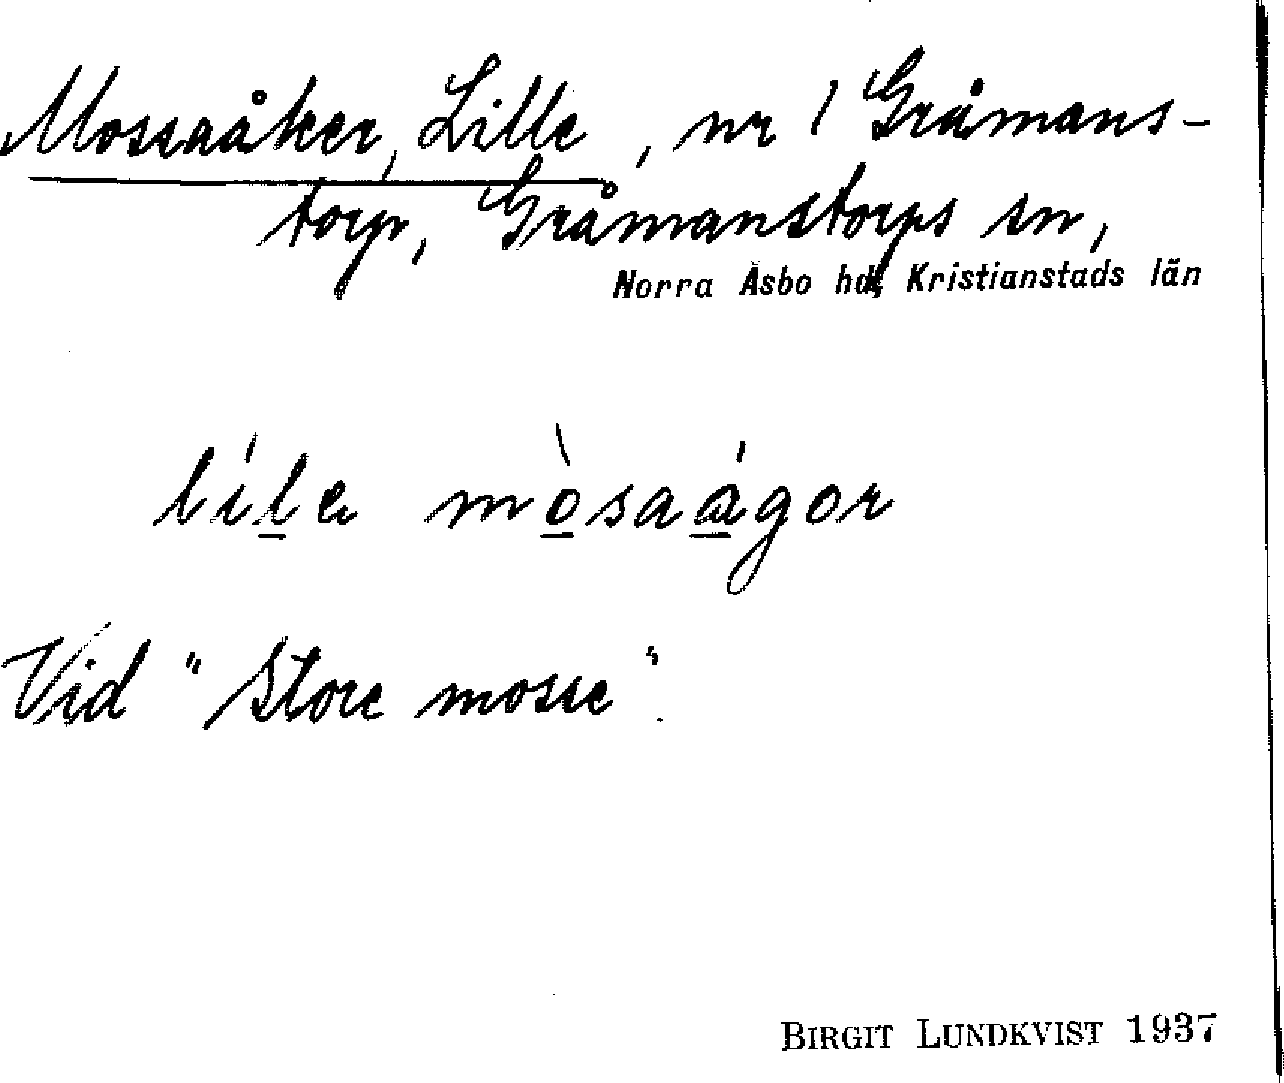 Mossaåker, Lille, nr 1 Gråmans-
torp, Gråmanstorps sn,
Norra Åsbo hd, Kristianstads län
líl̲e mò̲saá̲gor
Vid "Store mosse".
BIRGIT LUNDKVIST 1937